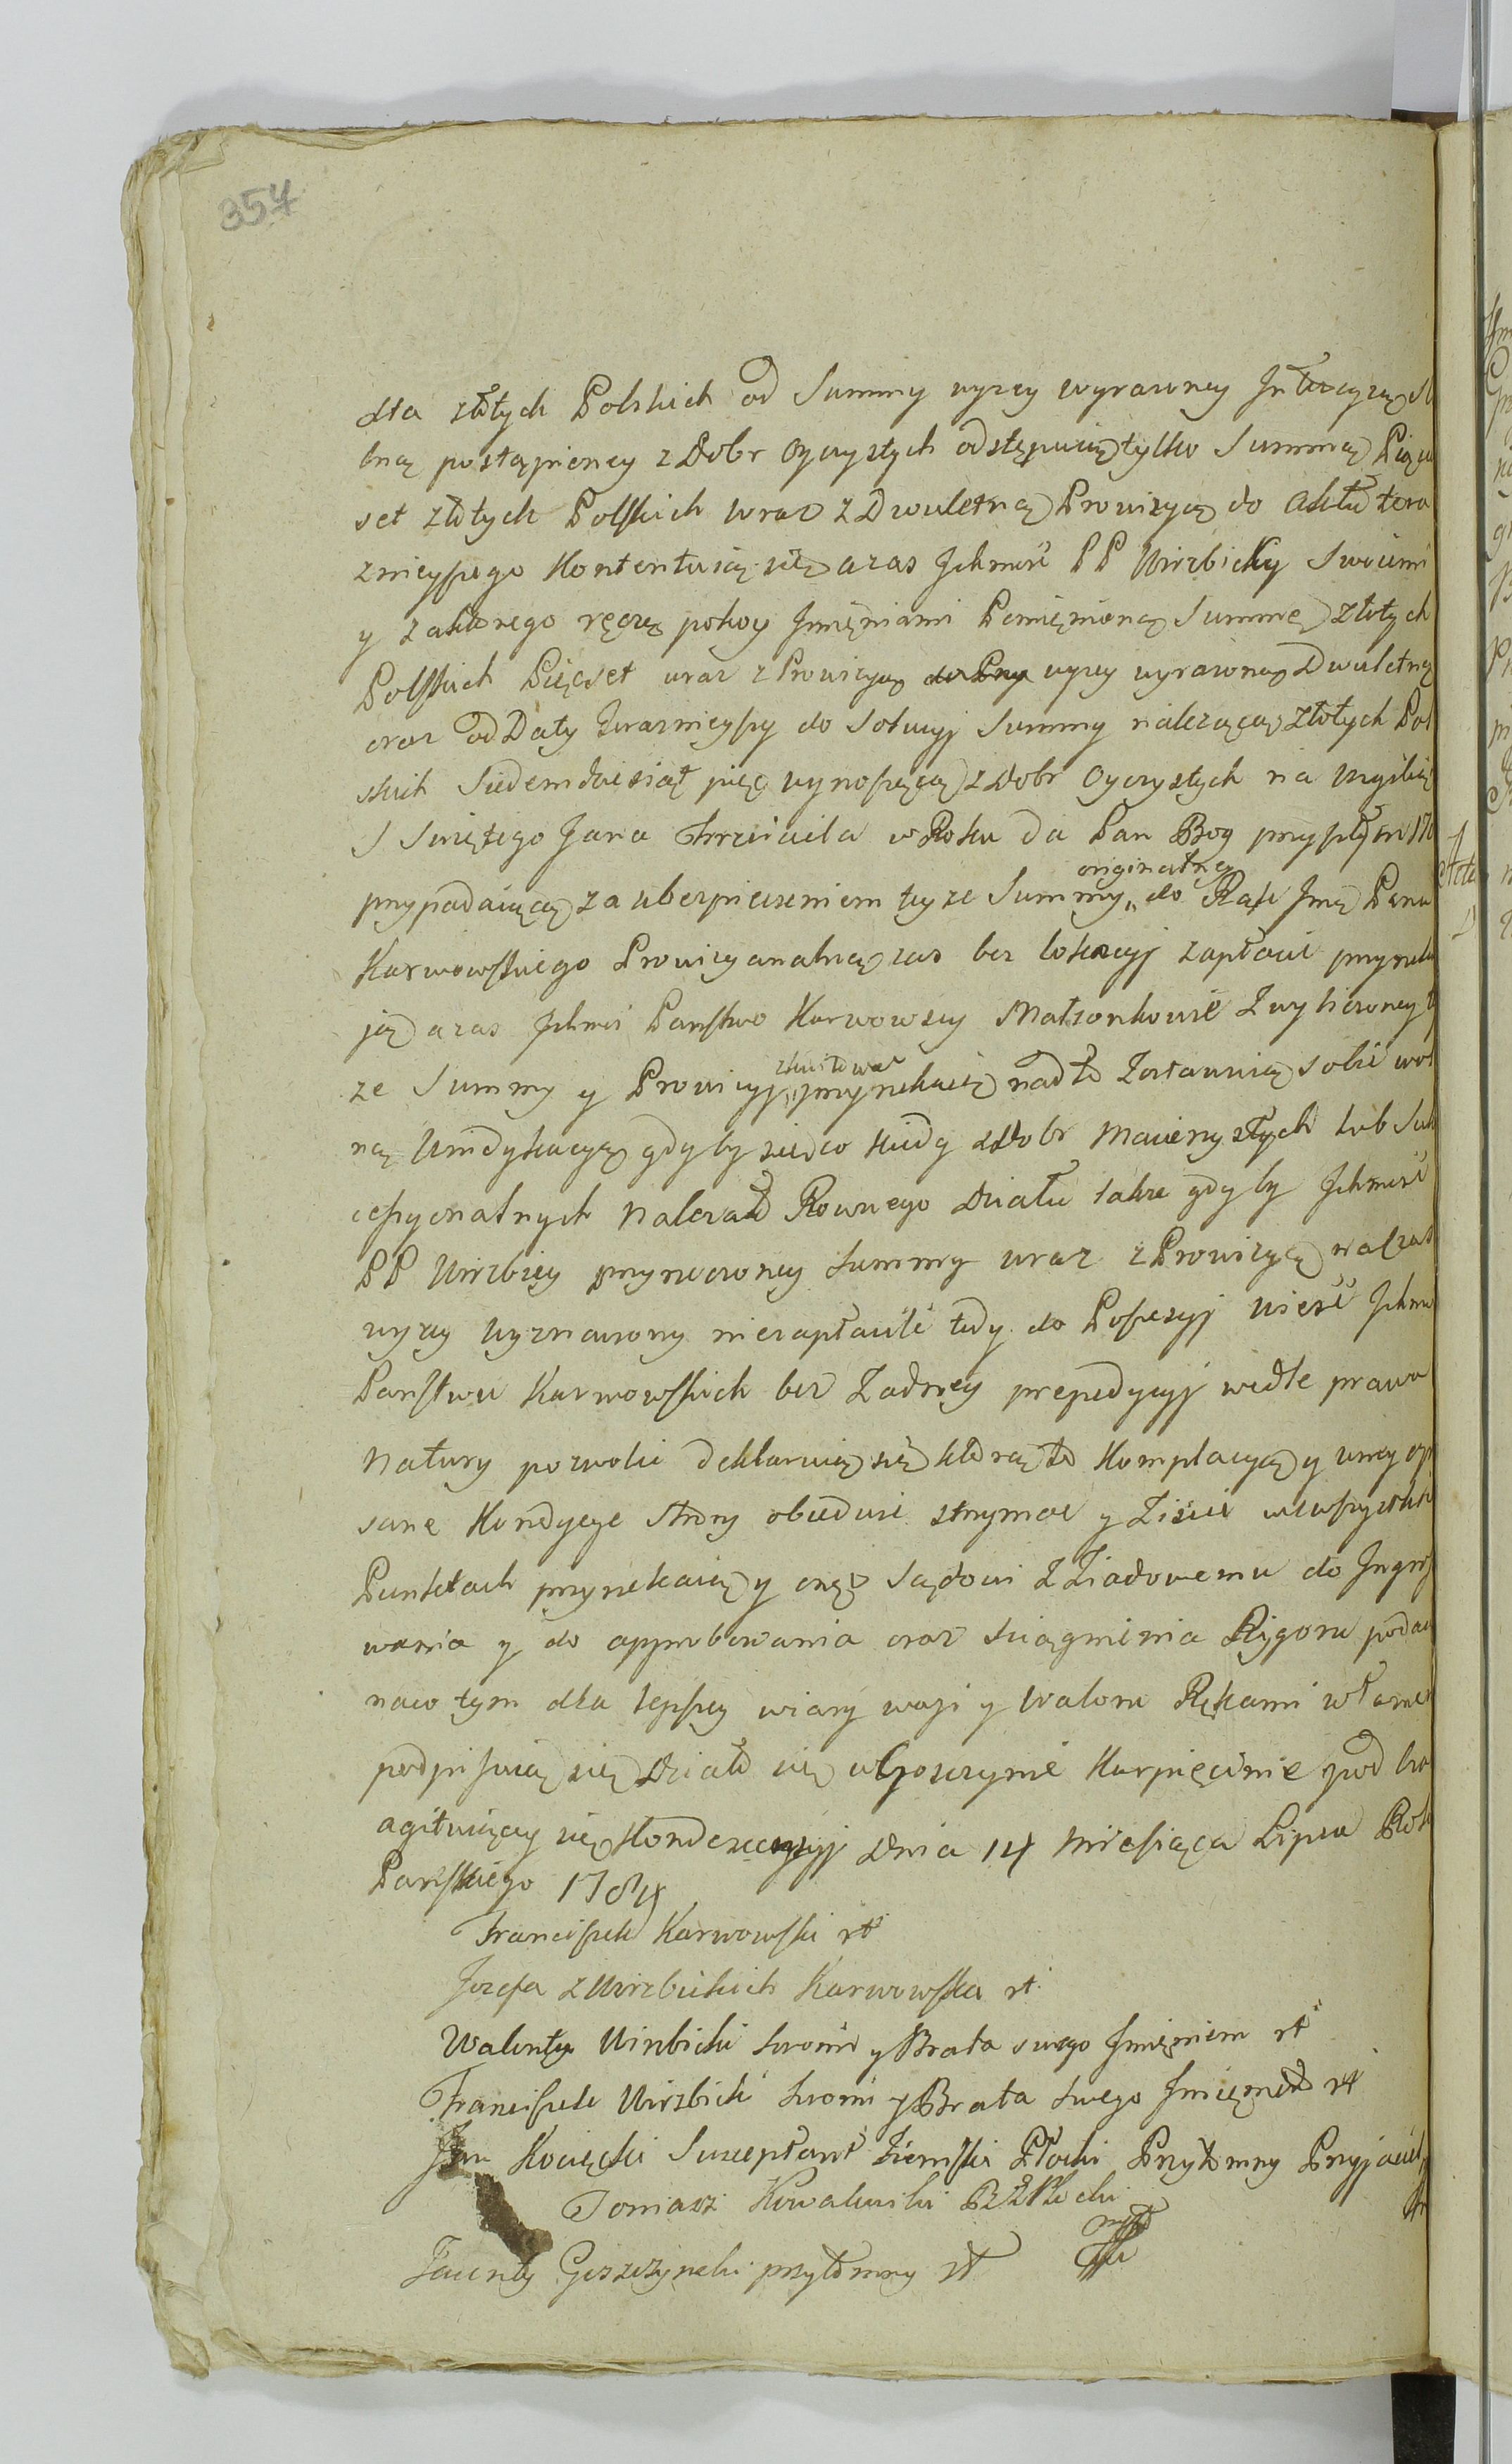 357
dla złotych Polskich od Summy wyzey wyrazoney Intercyzą Sl
bną postąpioney z Dobr Oyczystych odstępuią tylko Summą Pięci
set złotych Polskich wraz z Dwuletną Prowizyą do Aktu tera
znieyszego kontentuią się a zas Ichmość PP Wirzbickcy Swoiemi
y za ktorego ręczą pokoy Imięniami Pomięnioną Summę złotych
Polskich Pięcset wraz z Prowizyą wyzey wyrazoną Dwuletną
oraz od Daty teraznieyszy do Solucyj Summy nalezącą złotych Pol
skich Siedemdziesiąt pięc wynoszącą z Dobr Oyczystych na Wigilią
S Swiętego Jana Krzciciela w Roku da Pan Bog przyszłym 178
przypadaiącą za ubezpieczeniem teyze Summy „ originalną do Rąk Jmć Pana
Karwowskiego Prowizyonalną zas bez lokacyj zapłacić przyrzeka
ją a zas Ichmć Państwo Karwowscy Małzonkowie Z wyliczoney t
ze Summy y Prowizyj „ zkwitować przyrzekaią nadto Zostawuią sobie wol
ną Windykacyą gdyby się co kiedy z Dobr Macierzystych lub Suk
cessyonalnych nalezało Rownego Działu takze gdyby Ichmość
PP Wirzbiccy przyrzeczoney Summy wraz z Prowizyą na czas
wyzey wyznaczony niezapłacili tedy do Possesyj wieść Ichm
Państwu Karwowskich bez Zadney prepedycyj wedle prawa
Natury pozwolić deklaruią się ktorą to Komplacyą y w niey opi
sane Kondycye Strony obiedwie strzymać y Ziscić we wszystkich
Punktach przyrzekaią y onęż Sądowi Zziadowemu do Ingros
wania y do approbowania oraz sciągnienia Rygoru podai
na co tym dla lepszey wiary wagi y waloru Rękami własne
podpisuią się Działo się w Goszczynie Karpięcinie pod cza
agituiący się Kondescensyj Dnia 14 Miesiąca Lipca Roku
Pańskiego 1784
Franciszek Karwowski rt
Jozefa z Wirzbickich Karwowska rt
Walenty Wirzbicki Swoim y Brata swego Imięniem rt
Franciszek Wirzbicki Swoim y Brata Swego Imięniem rt
Jan Kocięcki Susceptant Ziemski Płocki Przytomny Przyjaciel
Tomasz Kowalewski
Goszczynski przytomny rt